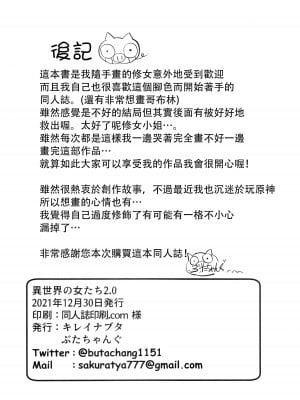 後記
這本書是我隨手畫的修女意外地受到歡迎
而且我自己也很喜歡這個腳色而開始著手的
同人誌。(還有非常想畫哥布林)
雖然感覺是不好的結局但其實後面有被好好地
救出喔。太好了呢修女小姐…。
雖然每次都是這樣我一邊哭著完全畫不好一邊
畫完這部作品…
就算如此大家可以享受我的作品我會很開心喔!
雖然很熱衷於創作故事,不過最近我也沉迷於玩原神
所以想畫的心情也有…
我覺得自己過度修飾了有可能有一格不小心
漏掉了…
非常感謝您本次購買這本同人誌!
異世界の女たち2.0
2021年12月30日発行
印刷:同人誌印刷.com 様
発行:キレイナブタ
ぶたちゃんぐ
Twitter : @butachang1151
Mail : sakuratya777@gmail.com